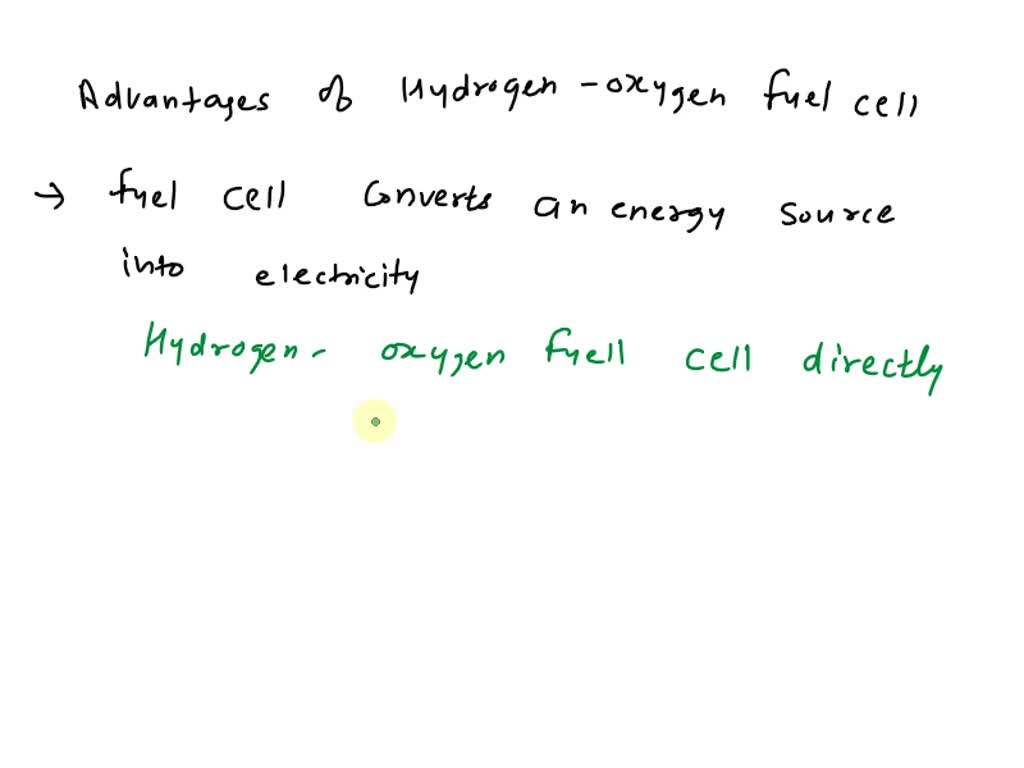 Advantages of Hydrogen-oxygen fuel cell
→ fuel cell Converts an energy source
into electricity
Hydrogen- oxygen fuell cell directly